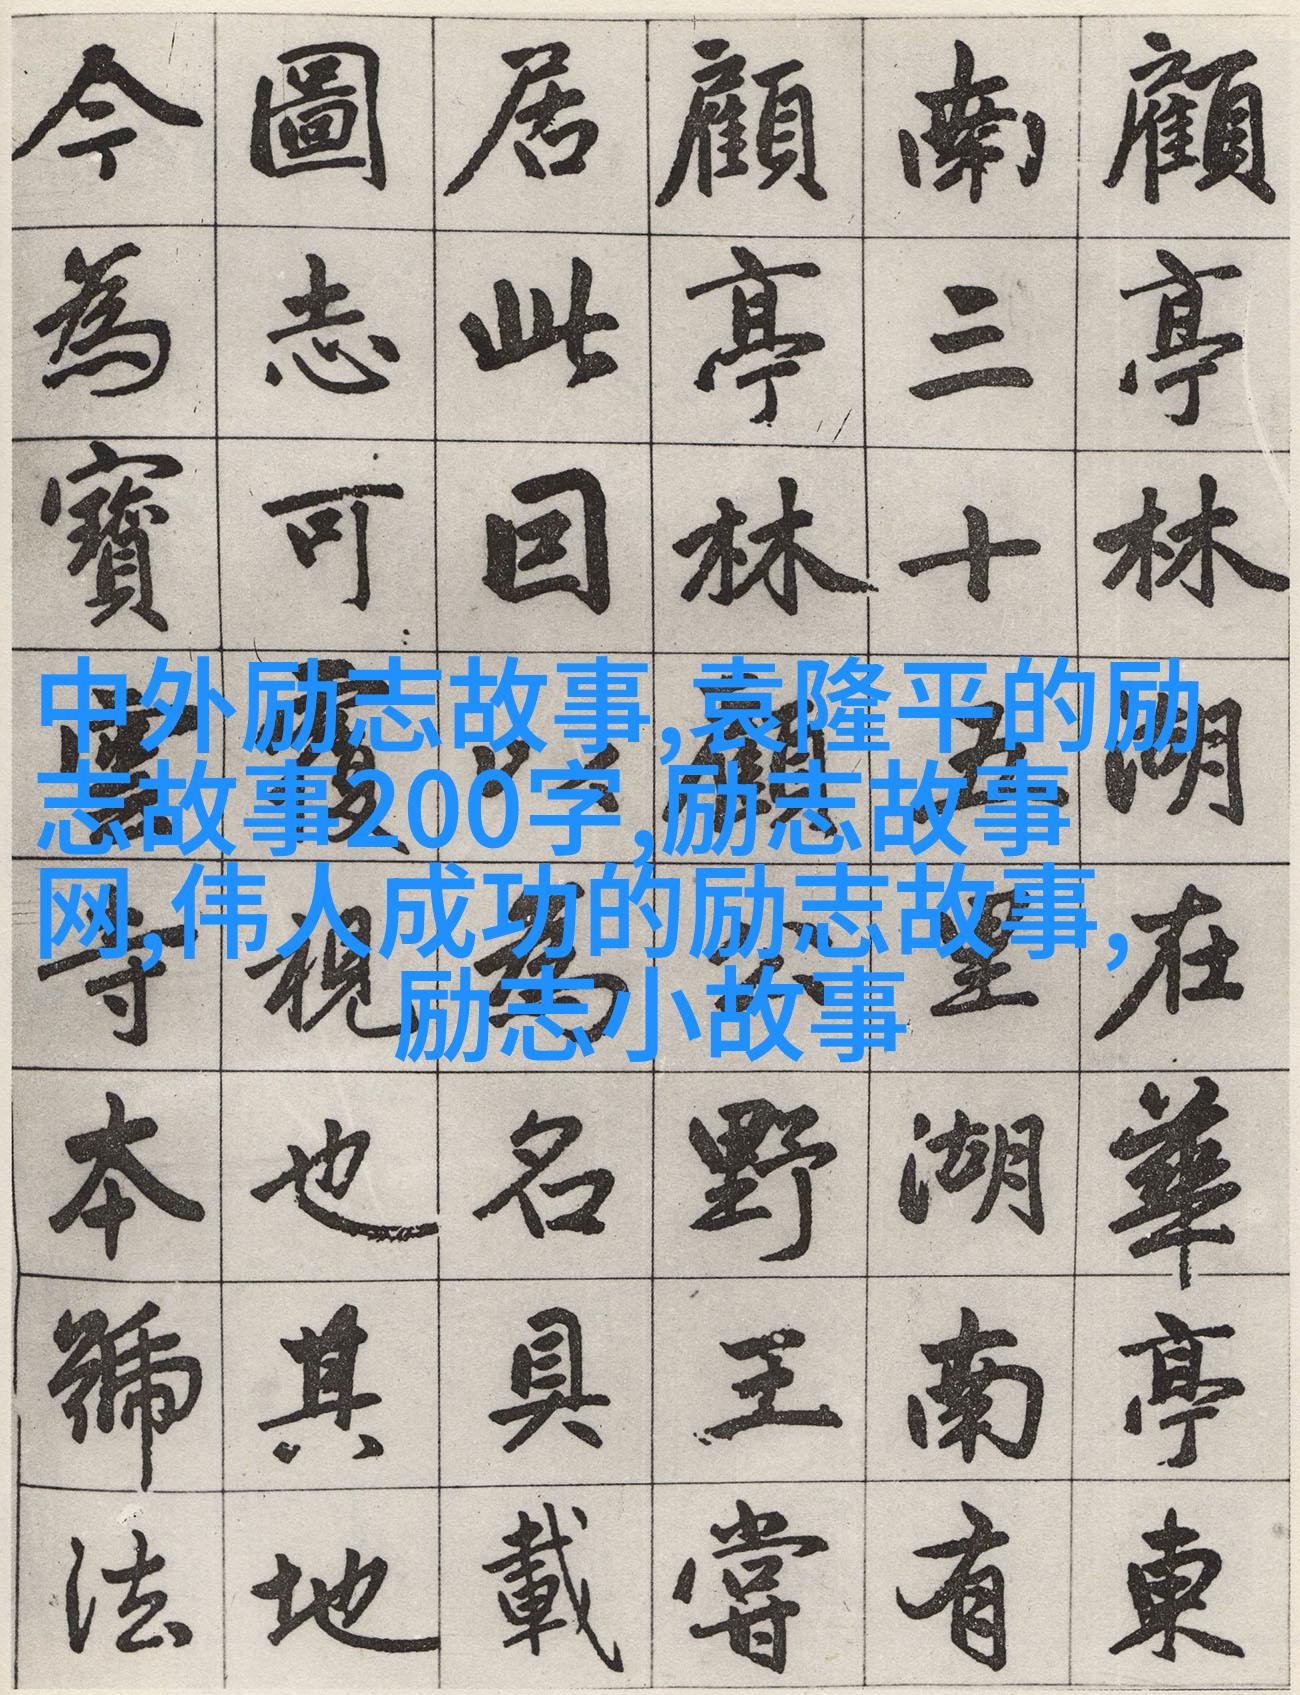 顧亭林湖在華亭東
南三十五里湖南有
顧亭林顧公野王嘗
居此囙以為名具載
圖志可覆視也其地
今為寶雲寺本號法
中外励志故事,袁隆平的励
志故事200字,励志故事
网,伟人成功的励志故事,
励志小故事